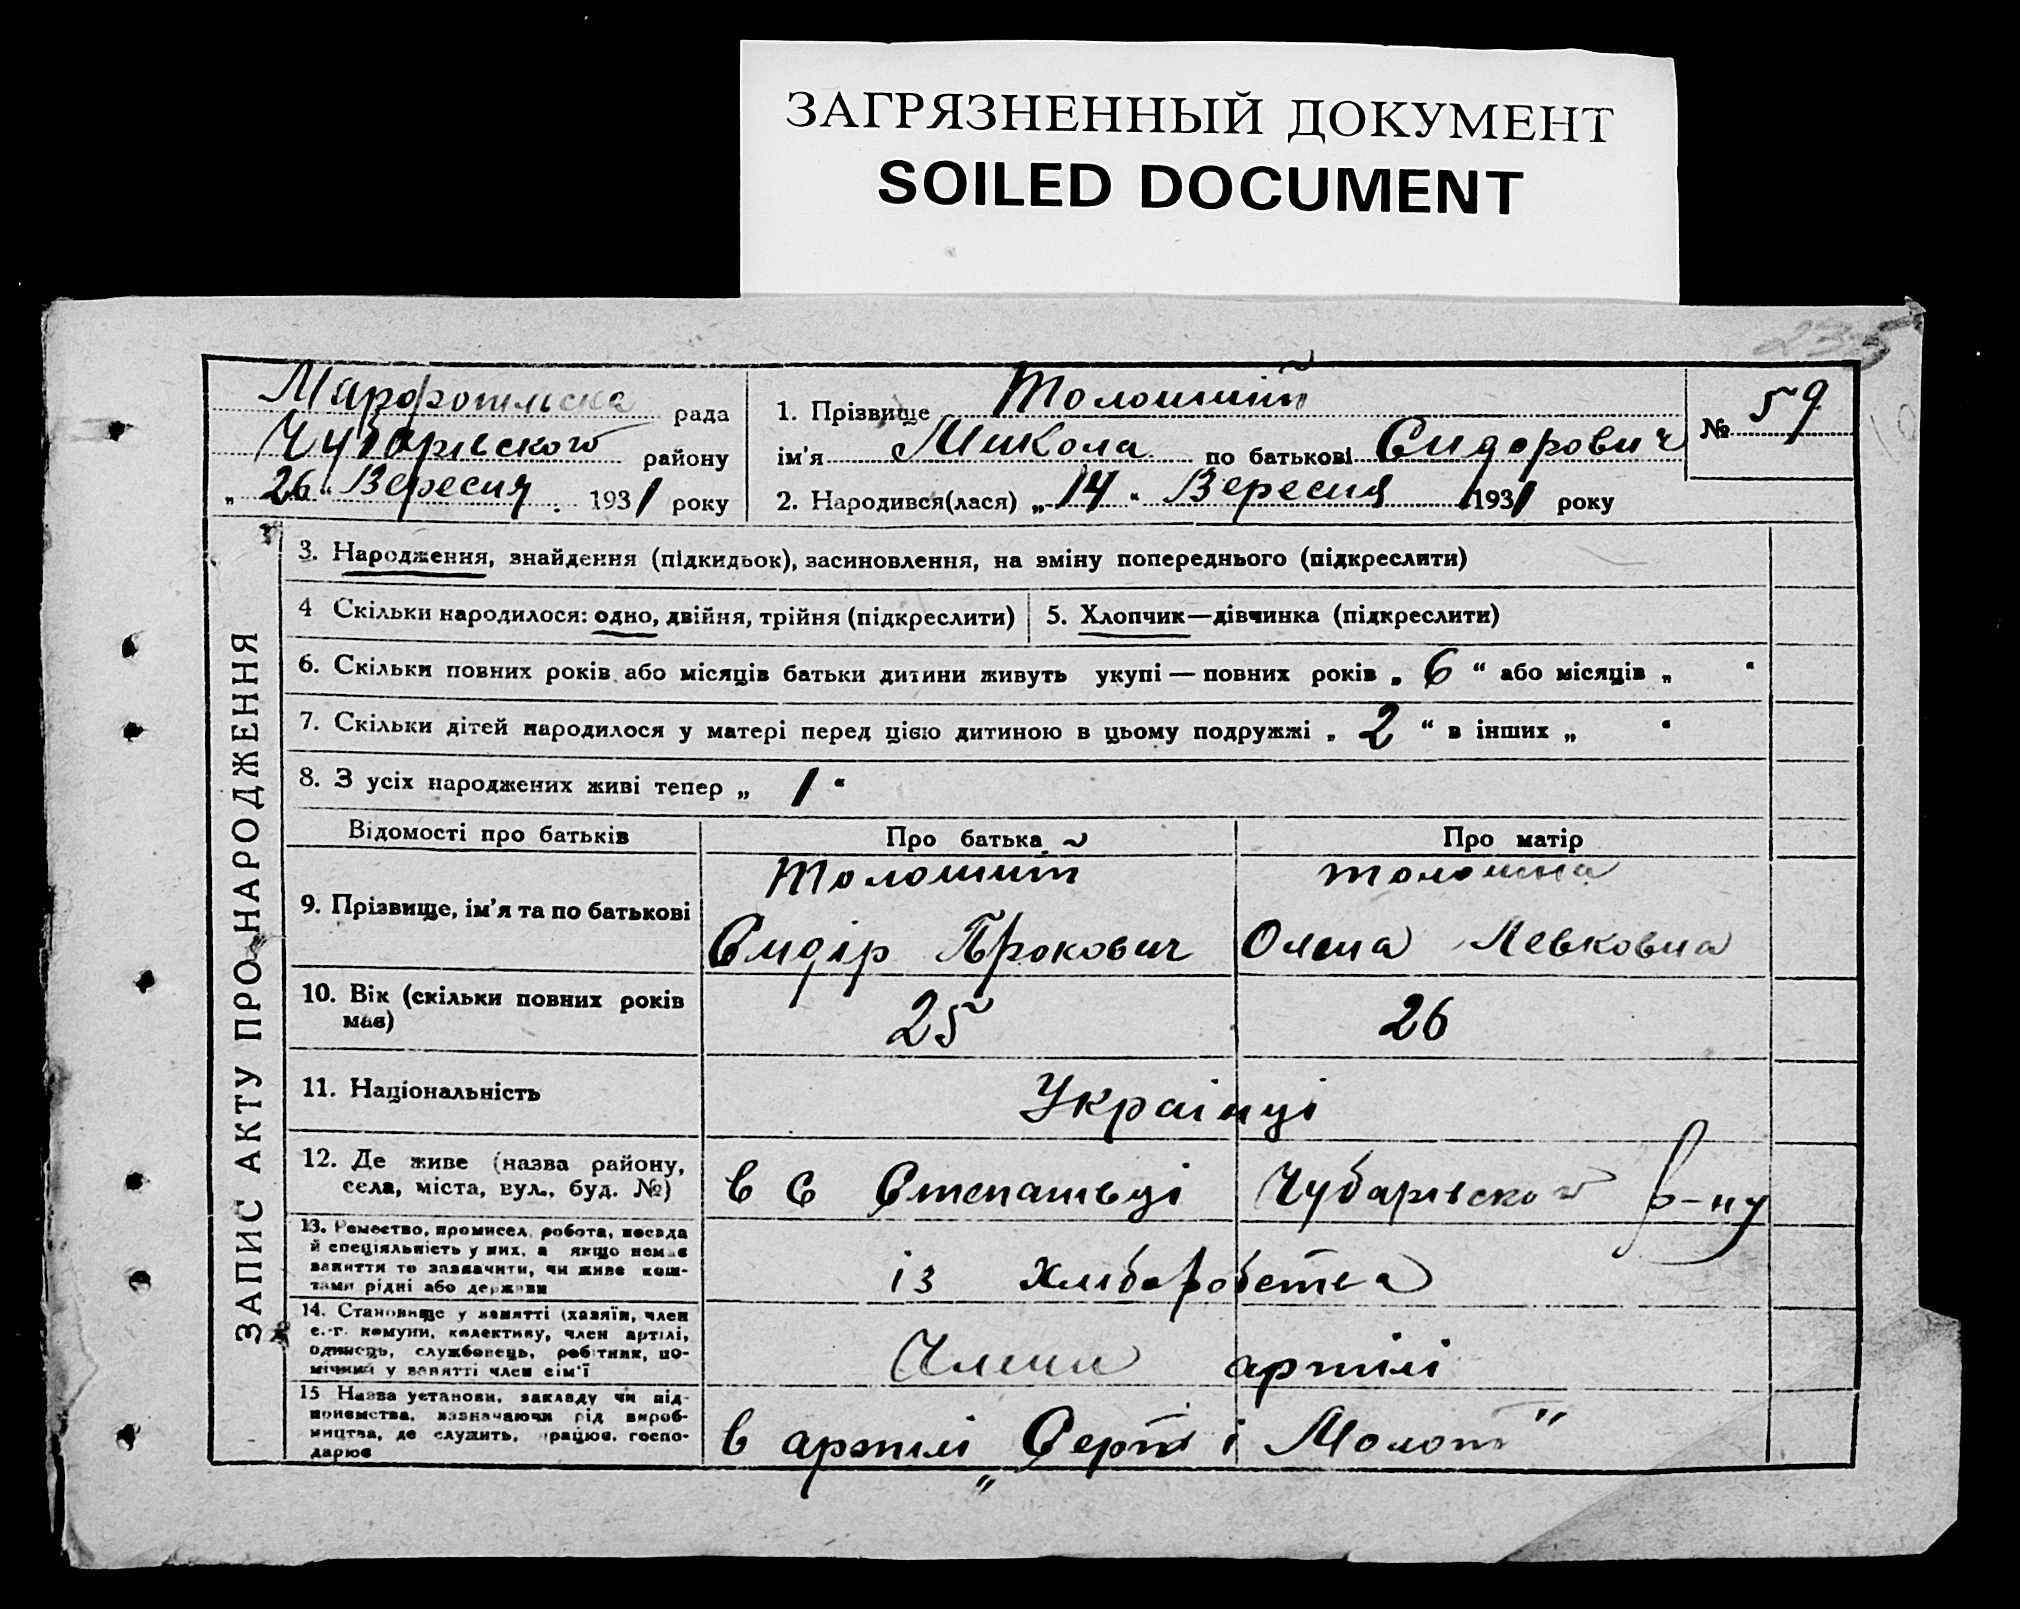 ЗАГРЯЗНЕННЫЙ ДОКУМЕНТ
SOILED DOCUMENT
235
Марфопільска рада
Чубарівского району
„ 26 “ Вересня 1931 року
1. Прізвище Толошний
ім'я Микола по батькові Сидорович
2. Народився(лася) „ 14 “ Вересня 1931 року
№ 59
ЗАПИС АКТУ ПРО НАРОДЖЕННЯ
3. Народження, знайдення (підкидьок), засиновлення, на зміну попереднього (підкреслити)
4 Скільки народилося: одно, двійня, трійня (підкреслити)
5. Хлопчик—дівчинка (підкреслити)
6. Скільки повних років або місяців батьки дитини живуть укупі — повних років „ 6 “ або місяців „ “
7. Скільки дітей народилося у матері перед цією дитиною в цьому подружжі „ 2 “ в інших „ “
8. З усіх народжених живі тепер „ 1 “
Відомості про батьків Про батька Про матір
9. Прізвище, ім'я та по батькові
Толошний
Сидір Прокович
Толошна
Олена Левковна
10. Вік (скільки повних років
має)
25
26
11. Національність
Українці
12. Де живе (назва району,
села, міста, вул., буд. №)
в с Степанівці Чубарівског р-ну
13. Ремество, промисел, робота, посада
й спеціяльність у них, а якщо немає
заняття то зазначити, чи живе кош-
тами рідні або держави
із Хліборобства
14. Становище у занятті (хазяїн, член
с.-г. комуни, колективу, член артілі,
одинець, службовець, робітник, по-
мічний у занятті член сім'ї
Члени артілі
15 Назва установи, закладу чи під-
приємства, зазначаючи рід вироб-
ництва, де служить, працює, госпо-
дарює
в артілі „Серп і Молот“